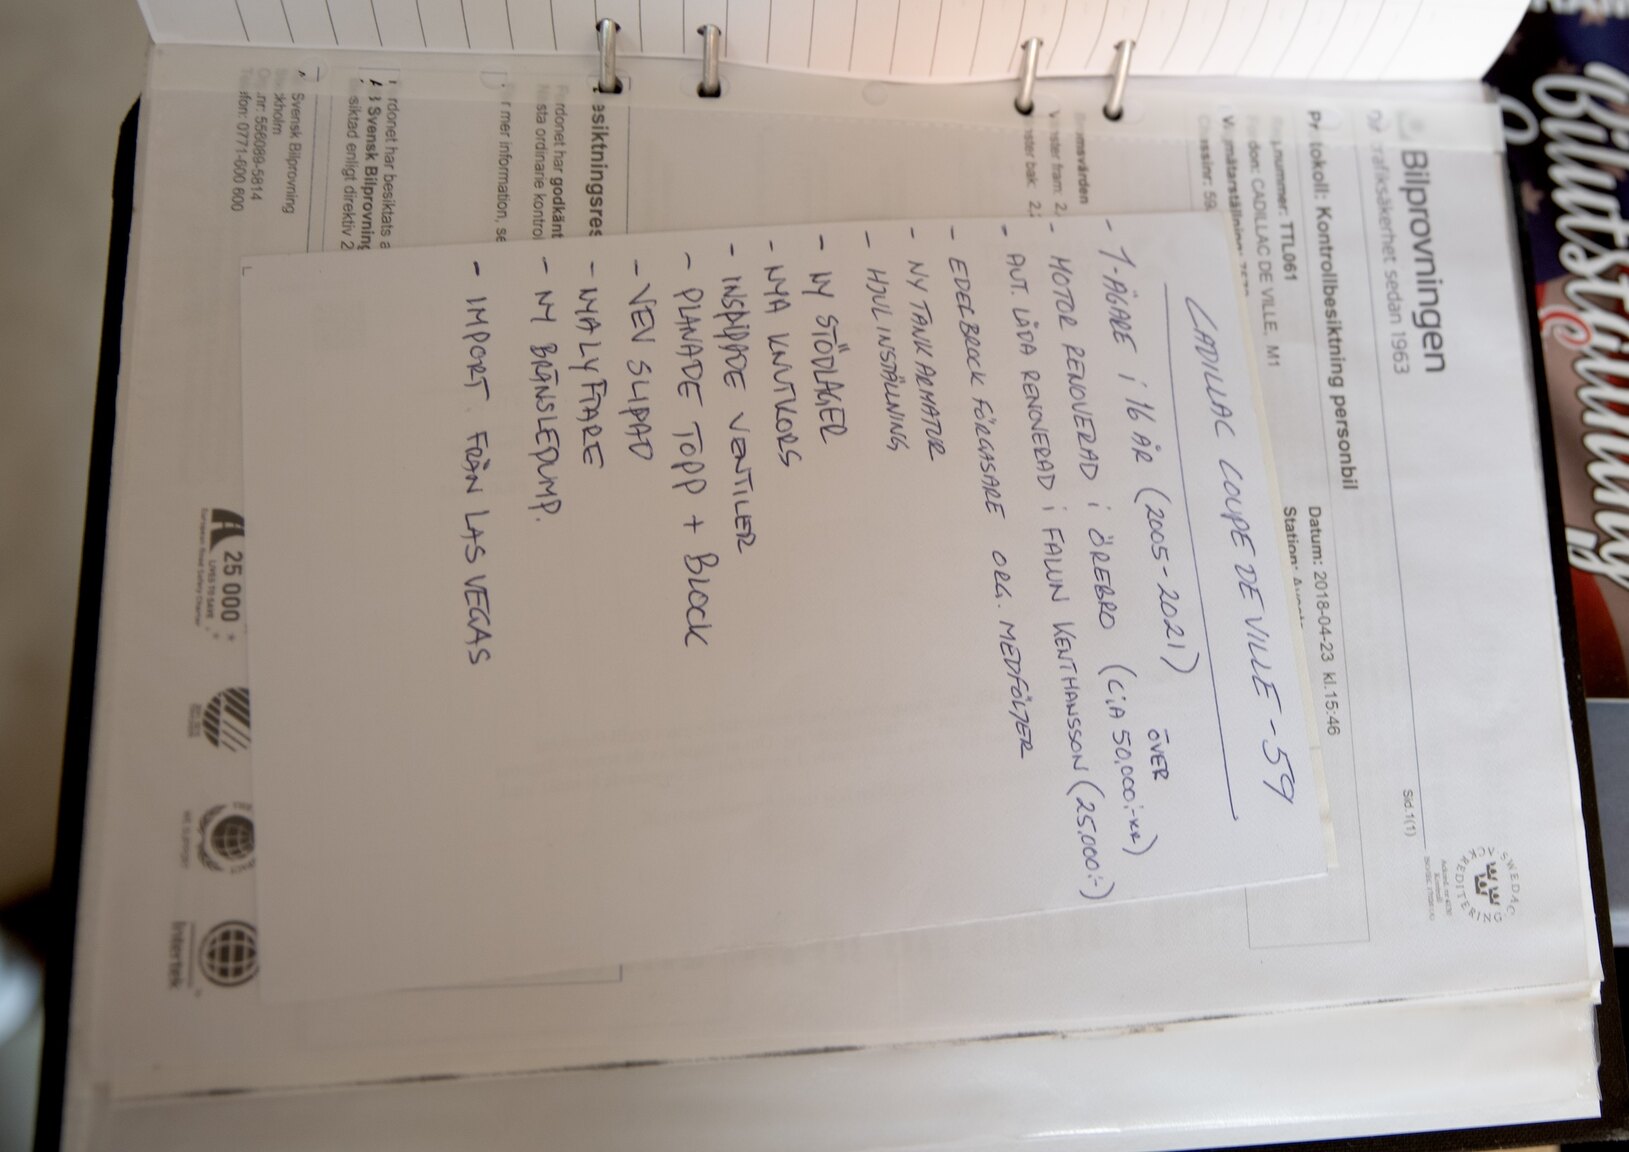 Bilprovningen
trafiksäkerhet sedan 1963
Sid.1(1)
SWEDAC
Protokoll: Kontrollbesiktning personbil
Datum: 2018-04-23 kl.15:46
nummer: TTL061
Station:
don: CADILLAC DE VILLE, M1
CADILLAC COUPE DE VILLE -59
- 1-ÄGARE i 16 ÅR (2005-2021)
ÖVER
- MOTOR RENOVERAD i ÖREBRO (CiA 50,000:-KR)
- AUT. LÅDA RENOVERAD i FALUN KENTHANSSON (25.000:-)
- EDELBROCK FÖRGASARE ORG. MEDFÖLJER
- NY TANKARMATUR
- HJULINSTÄLLNING
- NY STÖDLAGER
- NYA KNUTKORS
- INSLIPADE VENTILER
- PLANADE TOPP + BLOCK
- VEV SLIPAD
- NYA LYFTARE
- NY BRÄNSLEPUMP.
- IMPORT FRÅN LAS VEGAS
esiktningsres
rdonet har godkänt
sta ordinarie kontrol
r mer information, se
rdonet har besiktats a
Svensk Bilprovning
siktad enligt direktiv 2
Svensk Bilprovning
nr: 556089-5814
fon: 0771-600 600
25 000
LIVES TO SAVE
European Road Safety Charter
Intertek
Bilutställning